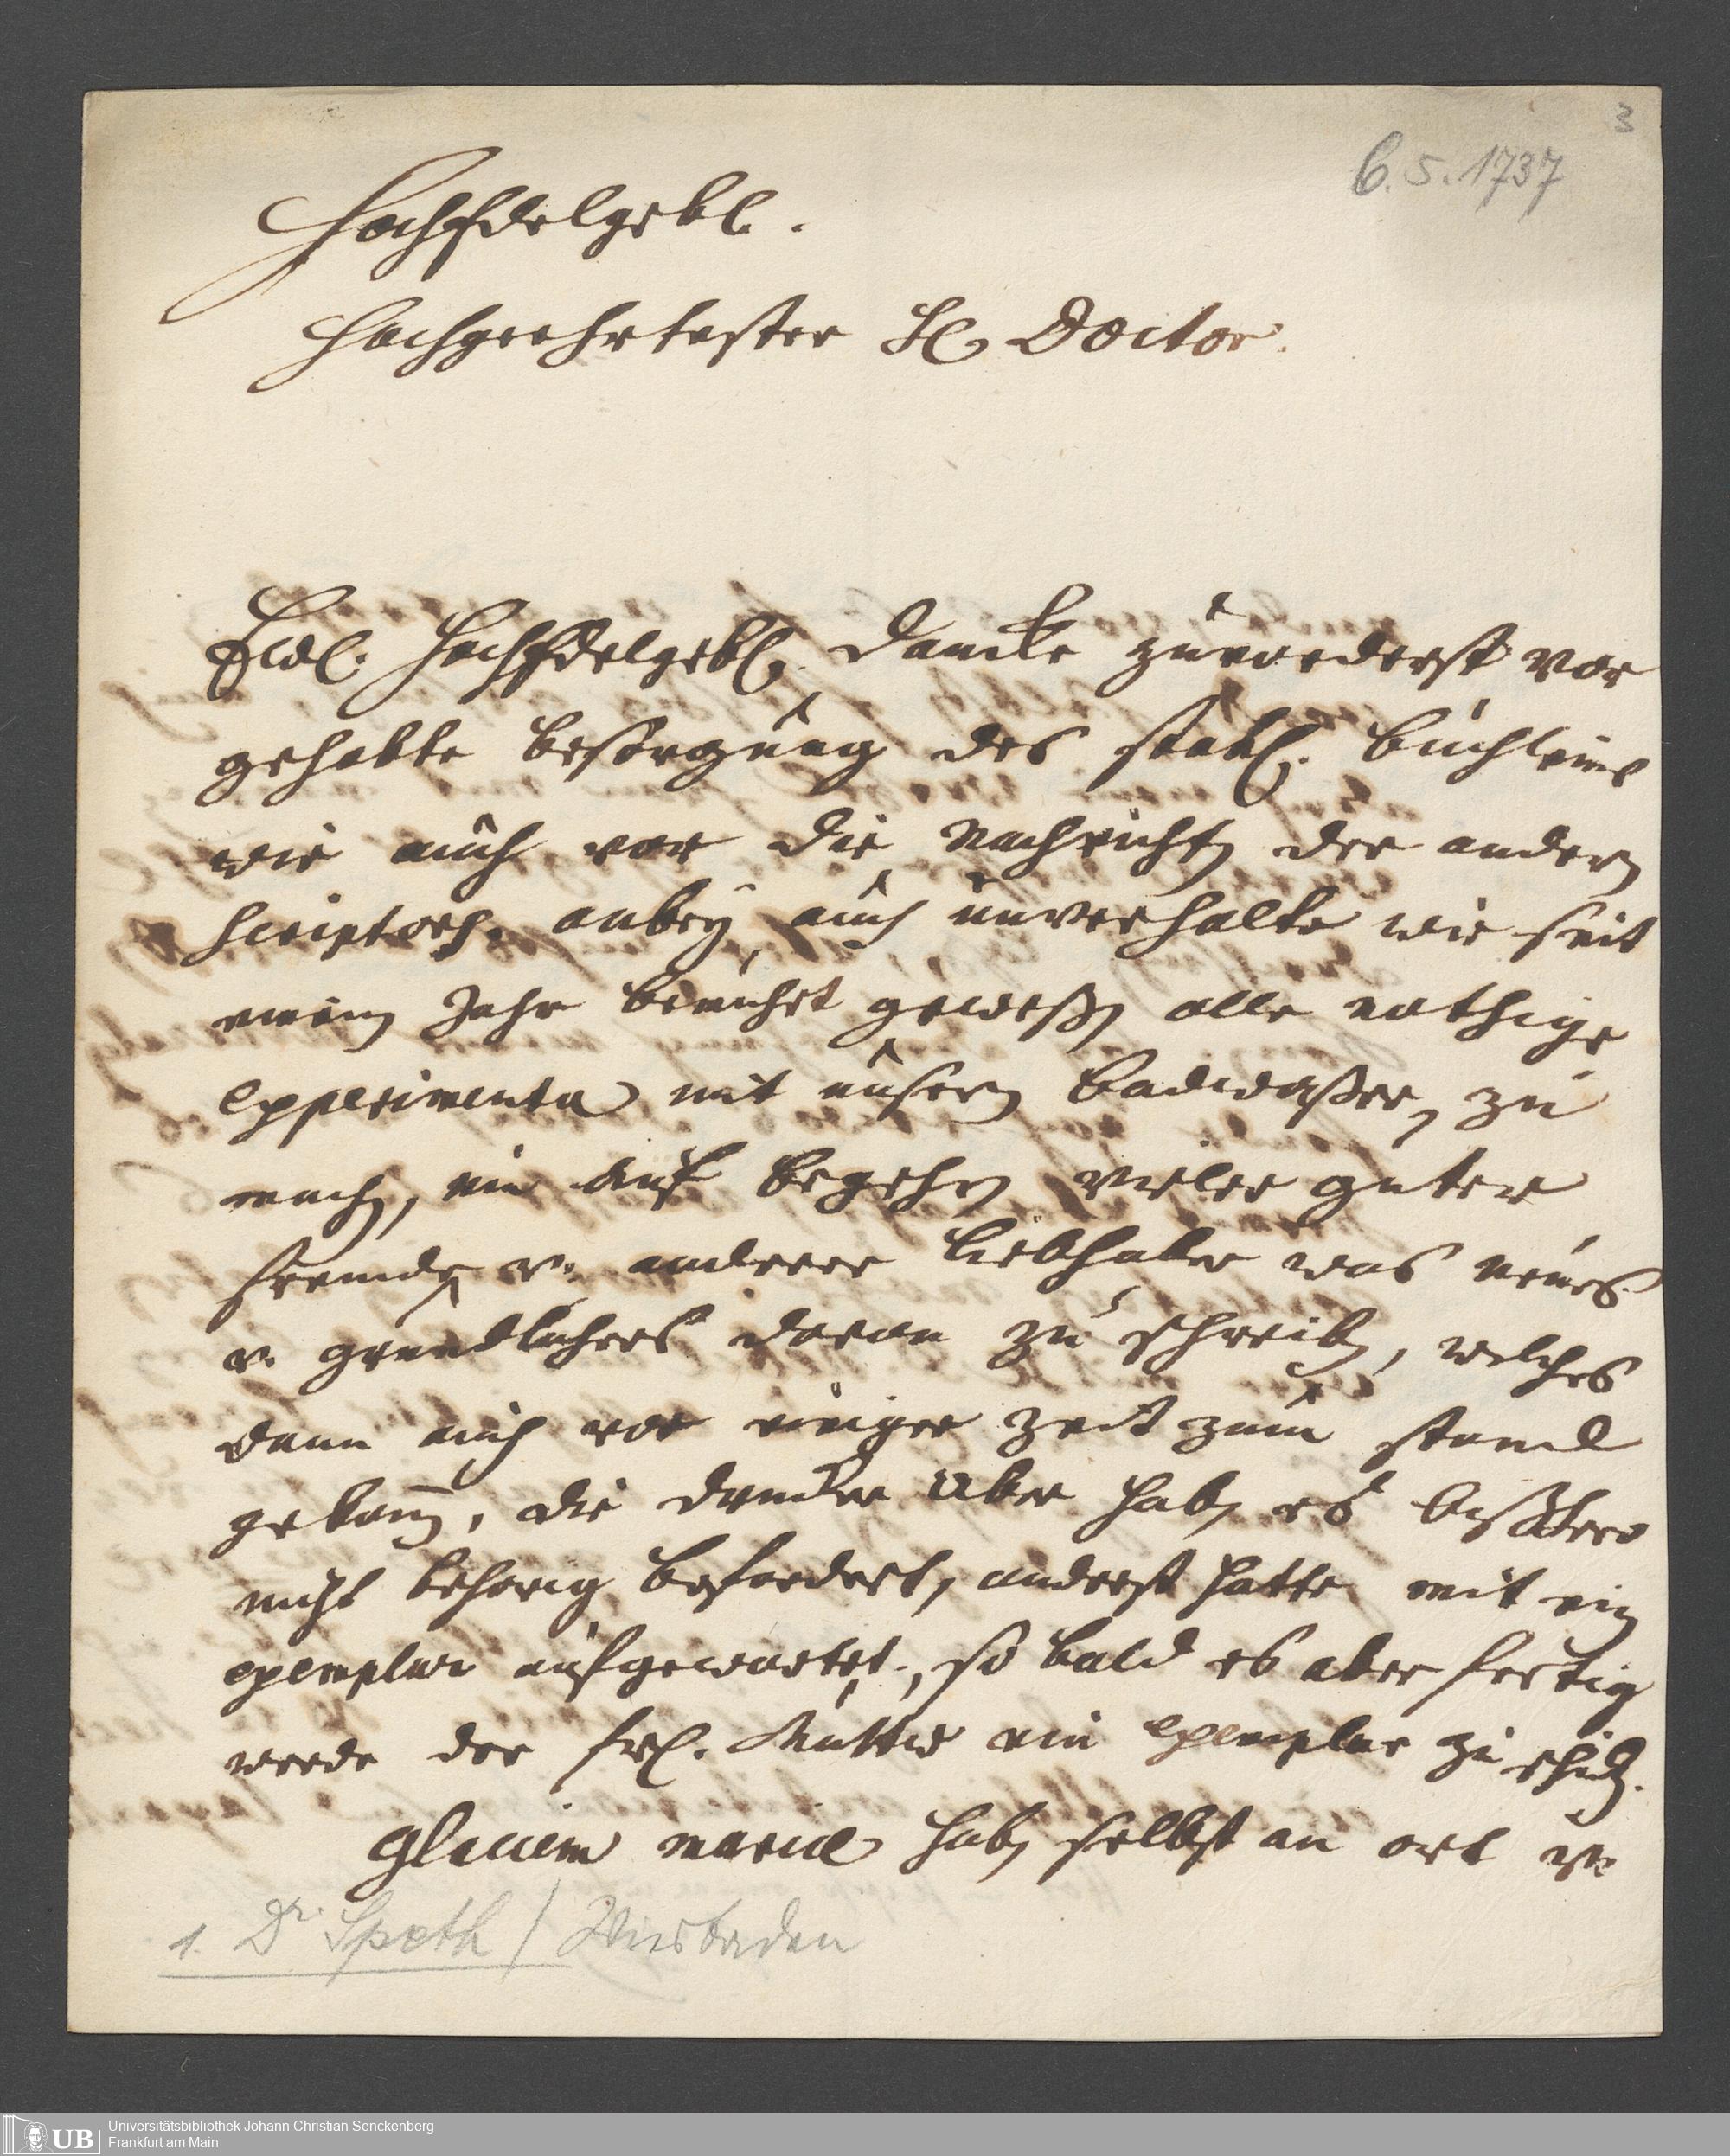 3
6.5.1737
HochEdelgebl.
Hochgeehrtester H. Doctor.
Ewl. HochEdelgebl. dancke zuvorderst vor
gehabte besorgung des büchleins
wie auch vor die Nachricht der andern
Scriptores. anbey auch unverhalte wie seit
einem Jahr bemühet geweßen alle nothige
Experimenta mit unsern Badwaßer, zu
machen, um auf begehren vieler guter
freunde v. anderer liebhaber was neues
v. gründlichers davon zu schreiben, welches
dann auch vor einiger Zeit zum stand
gekommen, die drucker aber haben es bißhero
nicht behörig befordert, anderst hatte mit ein
exemplar aufgewartet, so bald es aber fertig
werde der Mutter ein Exemplar zu schicken.
Glaciem mariae haben selbst an ort v.
1. Dr. Speth / Wiesbaden
UB Universitätsbibliothek Johann Christian Senckenberg
Frankfurt am Main